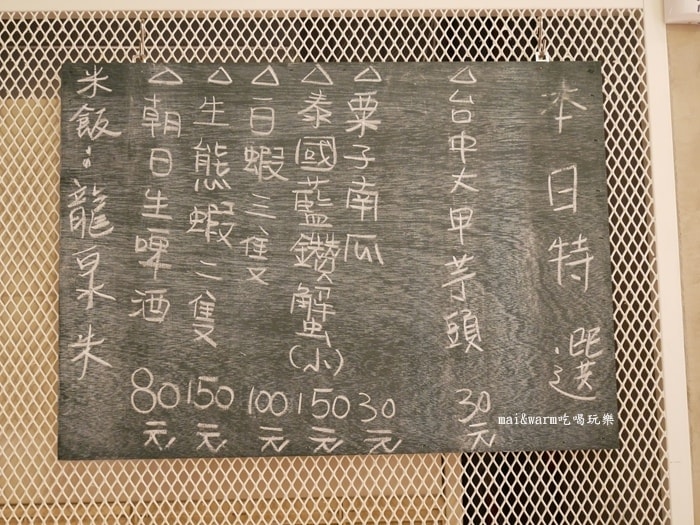 本日特選
△台中大甲芋頭 30元
△栗子南瓜 30元
△泰國藍鑽蟹(小) 150元
△白蝦三隻 100元
△生熊蝦二隻 150元
△朝日生啤酒 80元
米飯：龍泉米
mai&warm吃喝玩樂